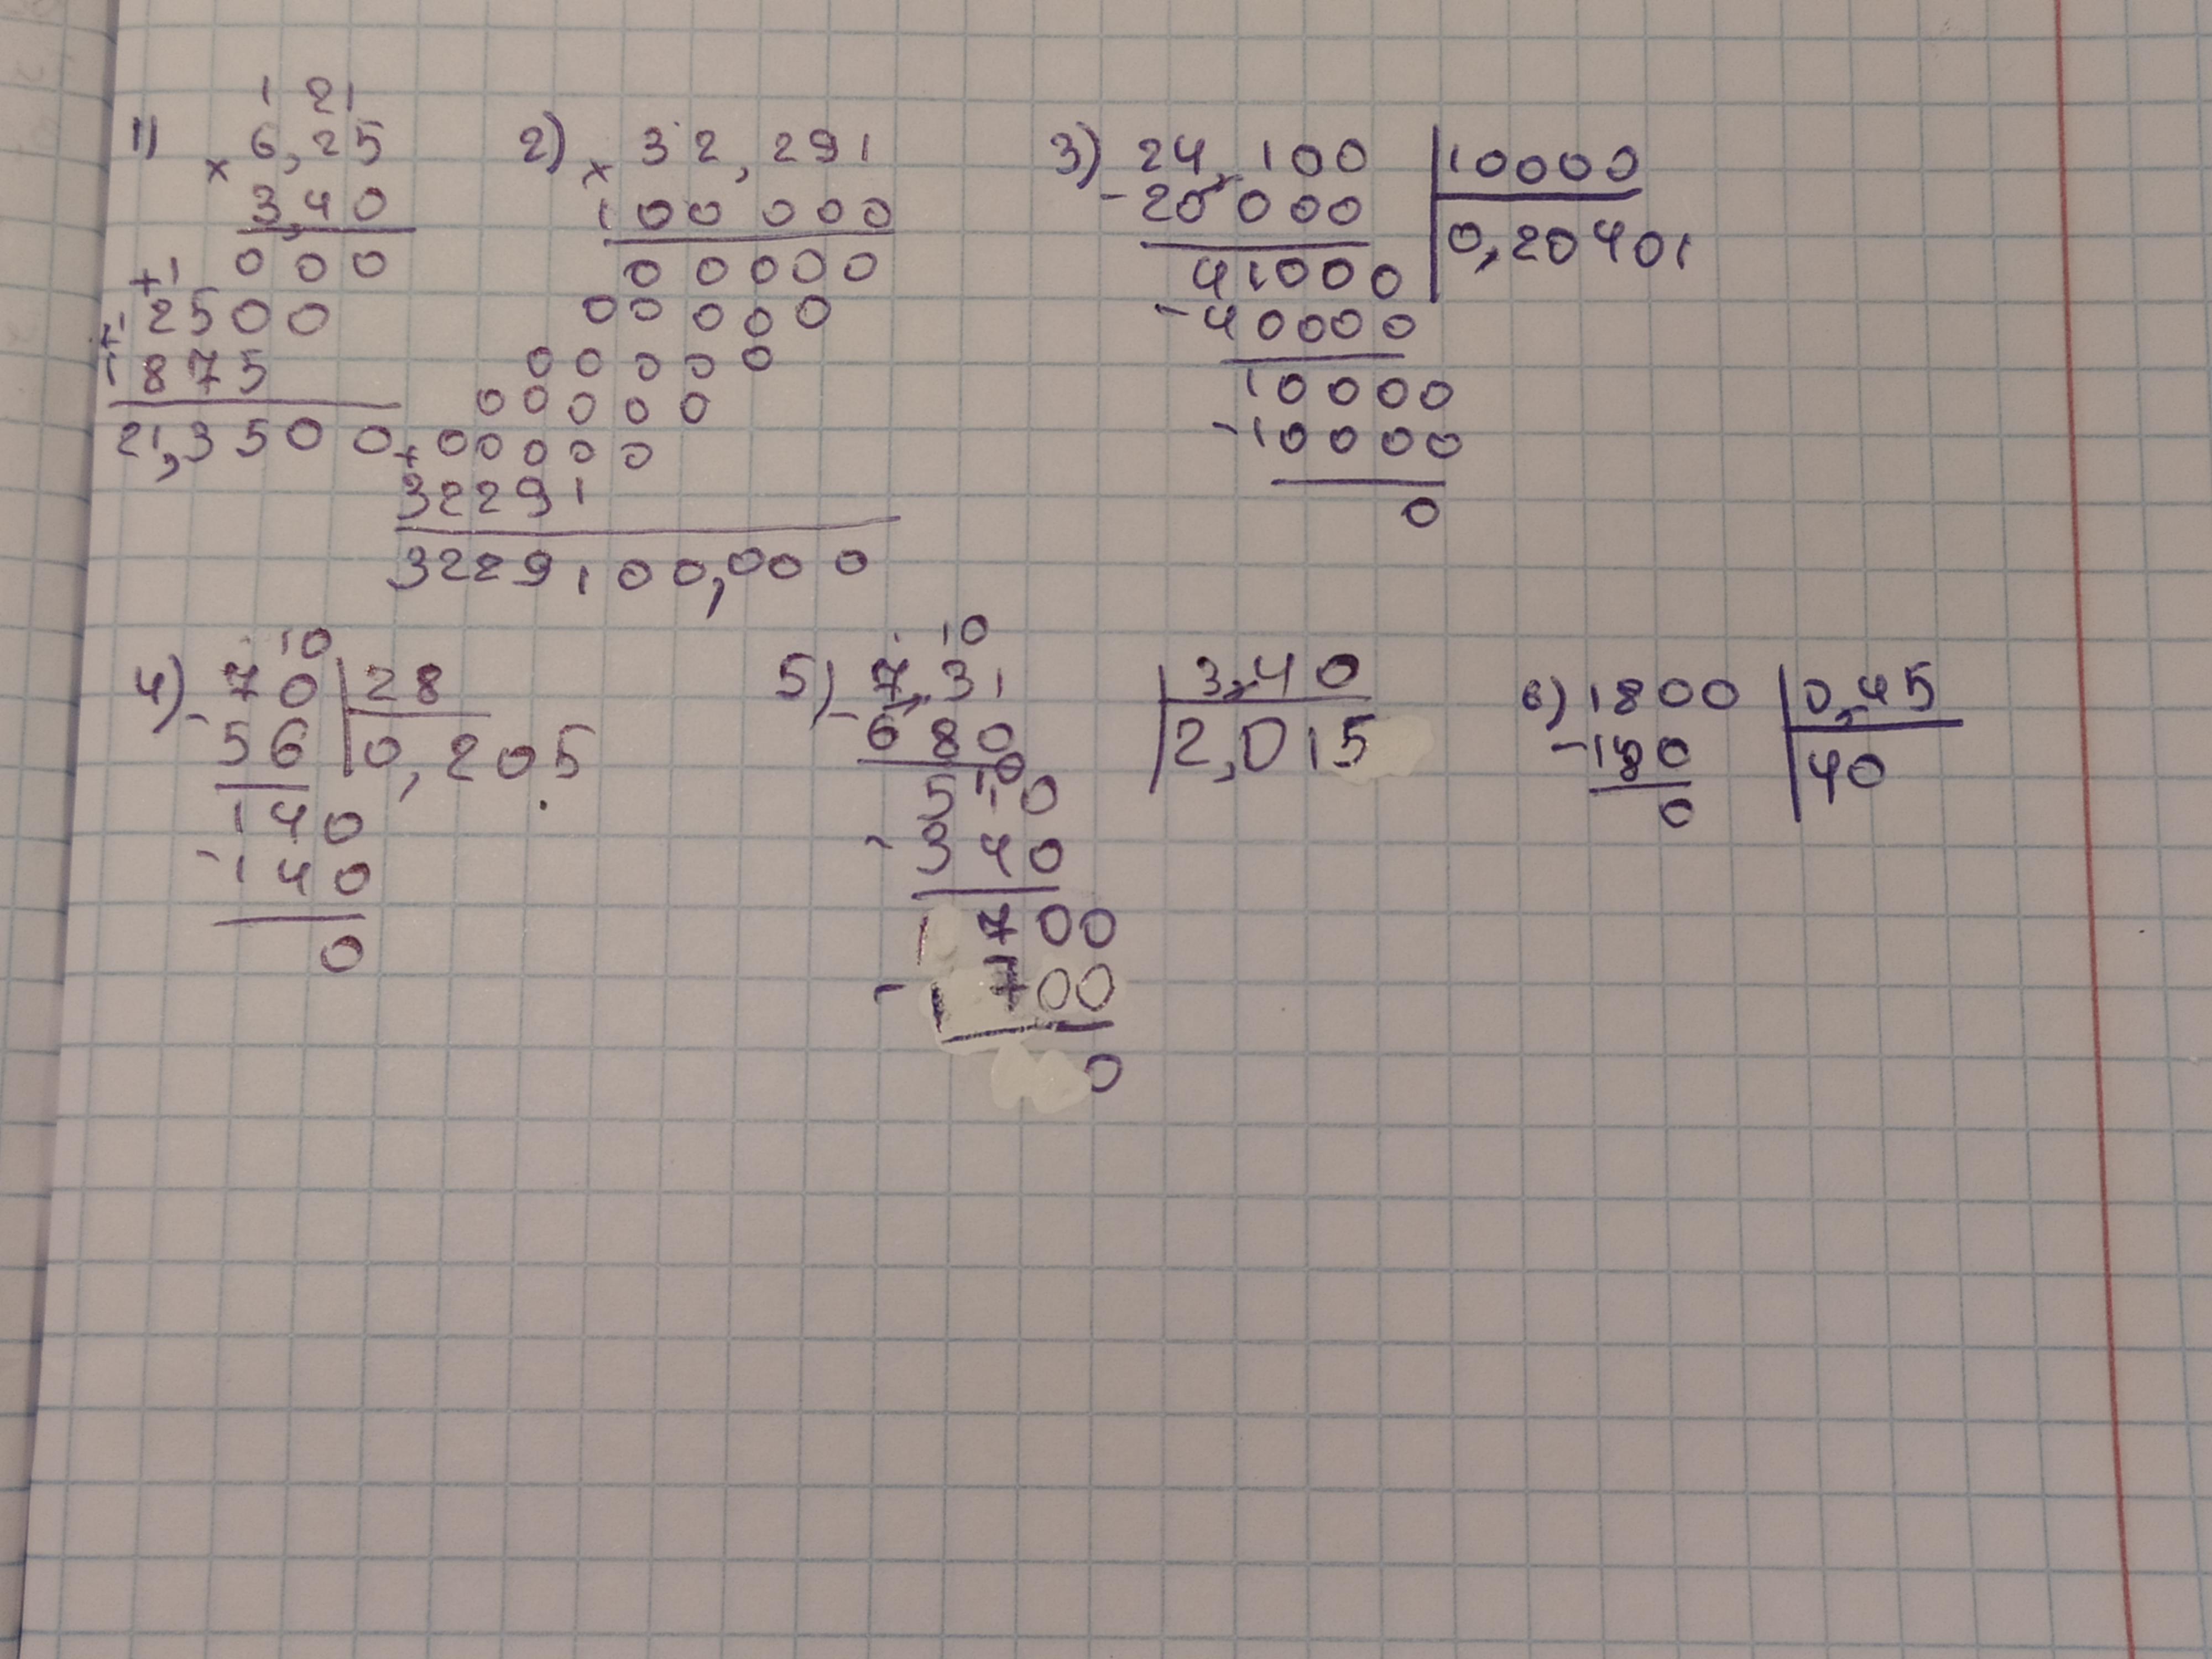 1 21
1) × 6,25
3,40
000
+1
2500
+1
1875
21,3500
2) × 32,291
100 000
00000
00000
00000
00000
+ 00000
32291
3229100,000
3) 24,100 | 10000
-20 000 | 0,20401
41000
-40000
10000
-10000
0
10
4) 70 | 28
-56 | 0,205
140
-140
0
10
5) 7,31 | 3,40
-680 | 2,015
10
510
-340
1700
-1700
0
6) 1800 | 0,45
-180 | 40
0